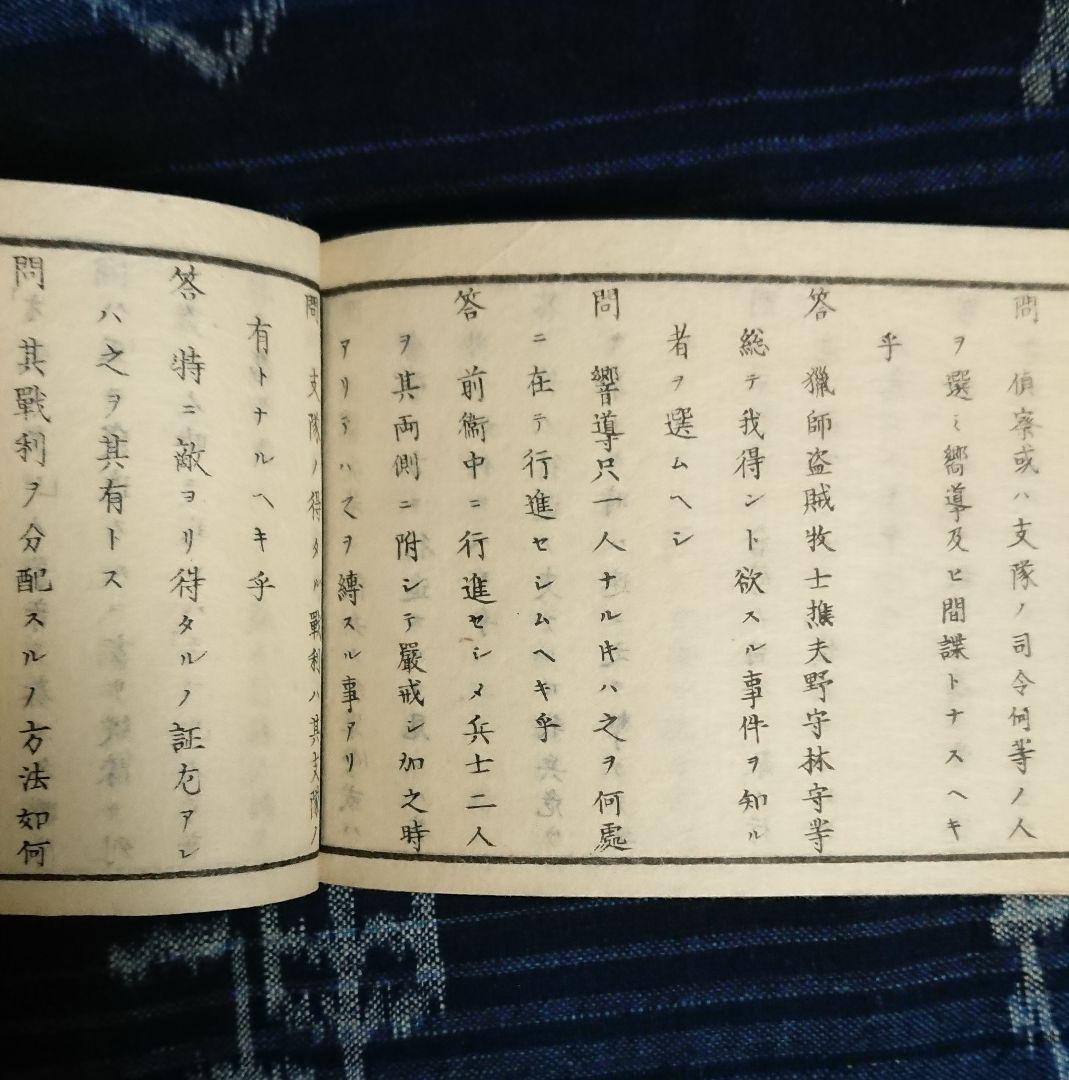 問 偵察或ハ支隊ノ司令何等ノ人
ヲ選ミ嚮導及ヒ間諜トナスヘキ
乎
答 獵師盗賊牧士樵夫野守林守等
総テ我得ント欲スル事件ヲ知ル
者ヲ選ムヘシ
問 嚮導只一人ナル𪜈ハ之ヲ何處
ニ在テ行進セシムヘキ乎
答 前衞中ニ行進セシメ兵士二人
ヲ其両側ニ附シテ嚴戒シ加之時
アリテハ之ヲ縛スル事アリ
問 支隊ノ得タル戰利ハ其支隊ノ
有トナルヘキ乎
答 特ニ敵ヨリ得タルノ証左アレ
ハ之ヲ其有トス
問 其戰利ヲ分配スルノ方法如何